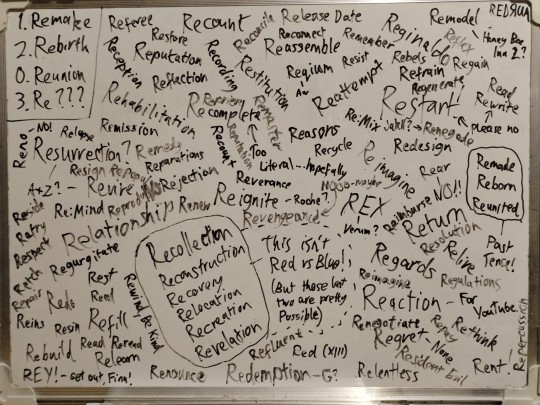 1. Remake
2. Rebirth
0. Reunion
3. Re ???
Referee
Recount
Reconcile
Release Date
Remodel
REDRUM
Restore
Reputation
Reconnect
Remember
Reginald
Reflex
Honey Bee
Inn 2?
Reception
Reflection
Recording
Restitution
Reassemble
Requiem
Resist
Rebels
Regain
Refrain
Regenerate!
Reattempt
Rehabilitation
Recomplete
Remaster
Restart
Read
Rewrite
please no
Reno
NO!
Relapse
Remission
Re:Mix
Jekyll? → Renegade
Resurrection?
Remedy
Reparations
Recount
Too
Literal...hopefully
Reasons
Recycle
Redesign
Re imagine
Rear
NO!!
Remade
Reborn
Reunited
Past
Tense!
Resign
A+Z? - Revive
Rejection
Reverance
Renew
Reignite - Roche?
Revengeance
REX
Verum?
Reimburse
Return
Reside
Retry
Respect
Re:Mind
Relationship
Resolution
Relive
Regards
Regulations
Retch
Regurgitate
Repair
Redo
Rest
Rend
Reins
Resin
Refill
Rewind, Be Kind
Recollection
Reconstruction
Recovery
Relocation
Recreation
Revelation
This isn't
Red vs Blue!
(But those last
two are pretty
possible)
Reimagine
Reaction - For
YouTube.
Renegotiate
Repay
Re-think
Repercussion
Rebuild
Read
Reread
Reborn
Refluent
Red (XIII)
Regret - None
Resident Evil
Rent!
REY! - set out, Finn!
Renounce
Redemption - G?
Relentless